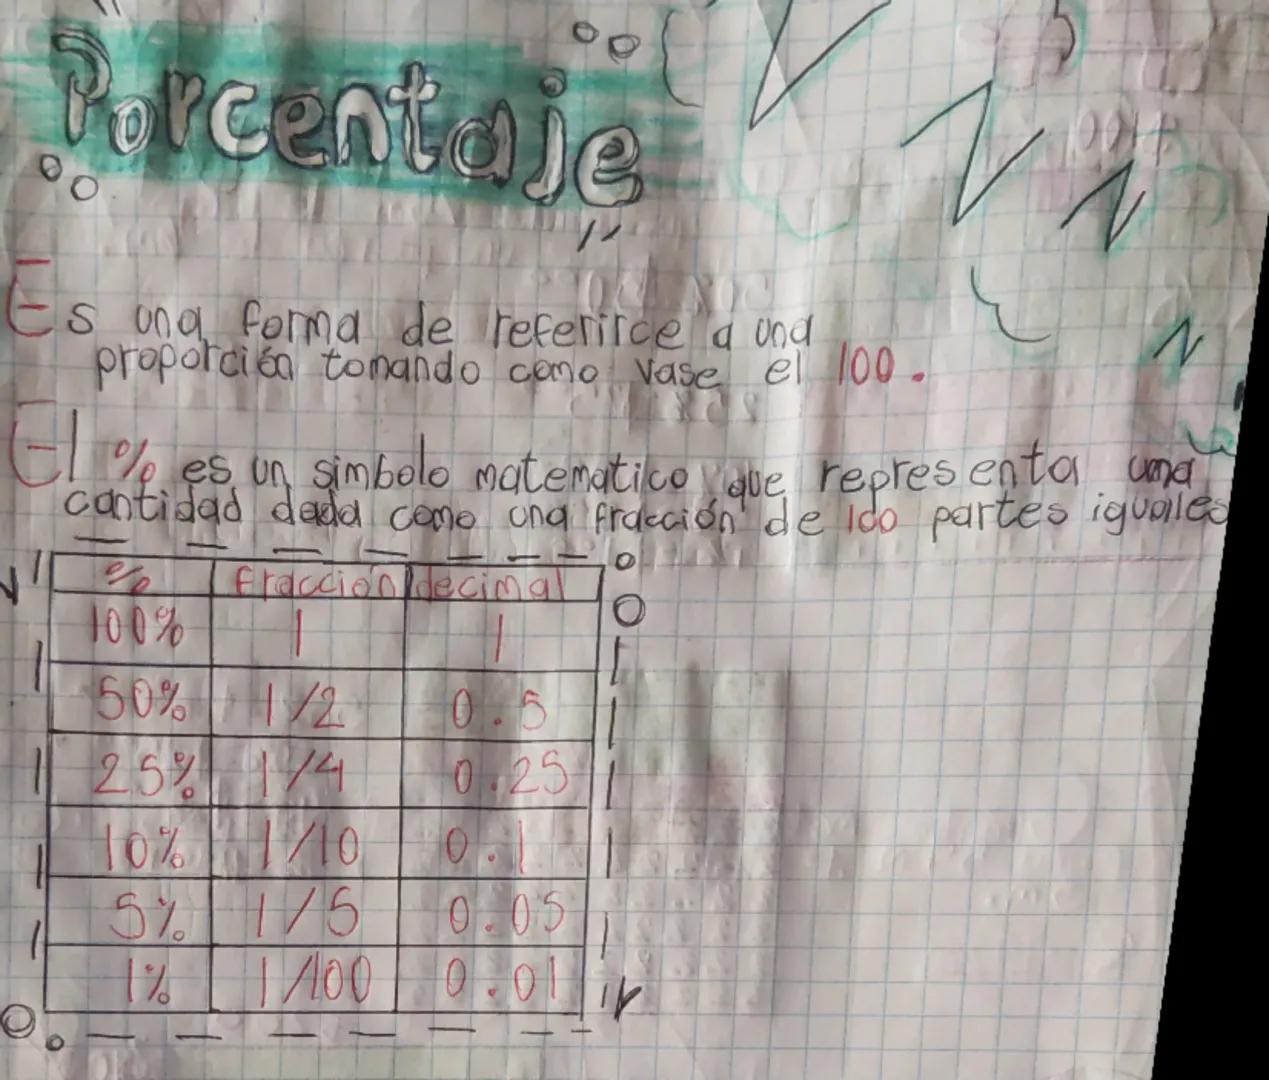 Porcentaje
Es una forma de referirce a una
proporción tomando como vase el 100.
El % es un simbolo matematico que representa una
cantidad dada como una fracción de 100 partes iguales
% fracción decimal
100% 1 1
50% 1/2 0.5
25% 1/4 0.25
10% 1/10 0.1
5% 1/5 0.05
1% 1/100 0.01